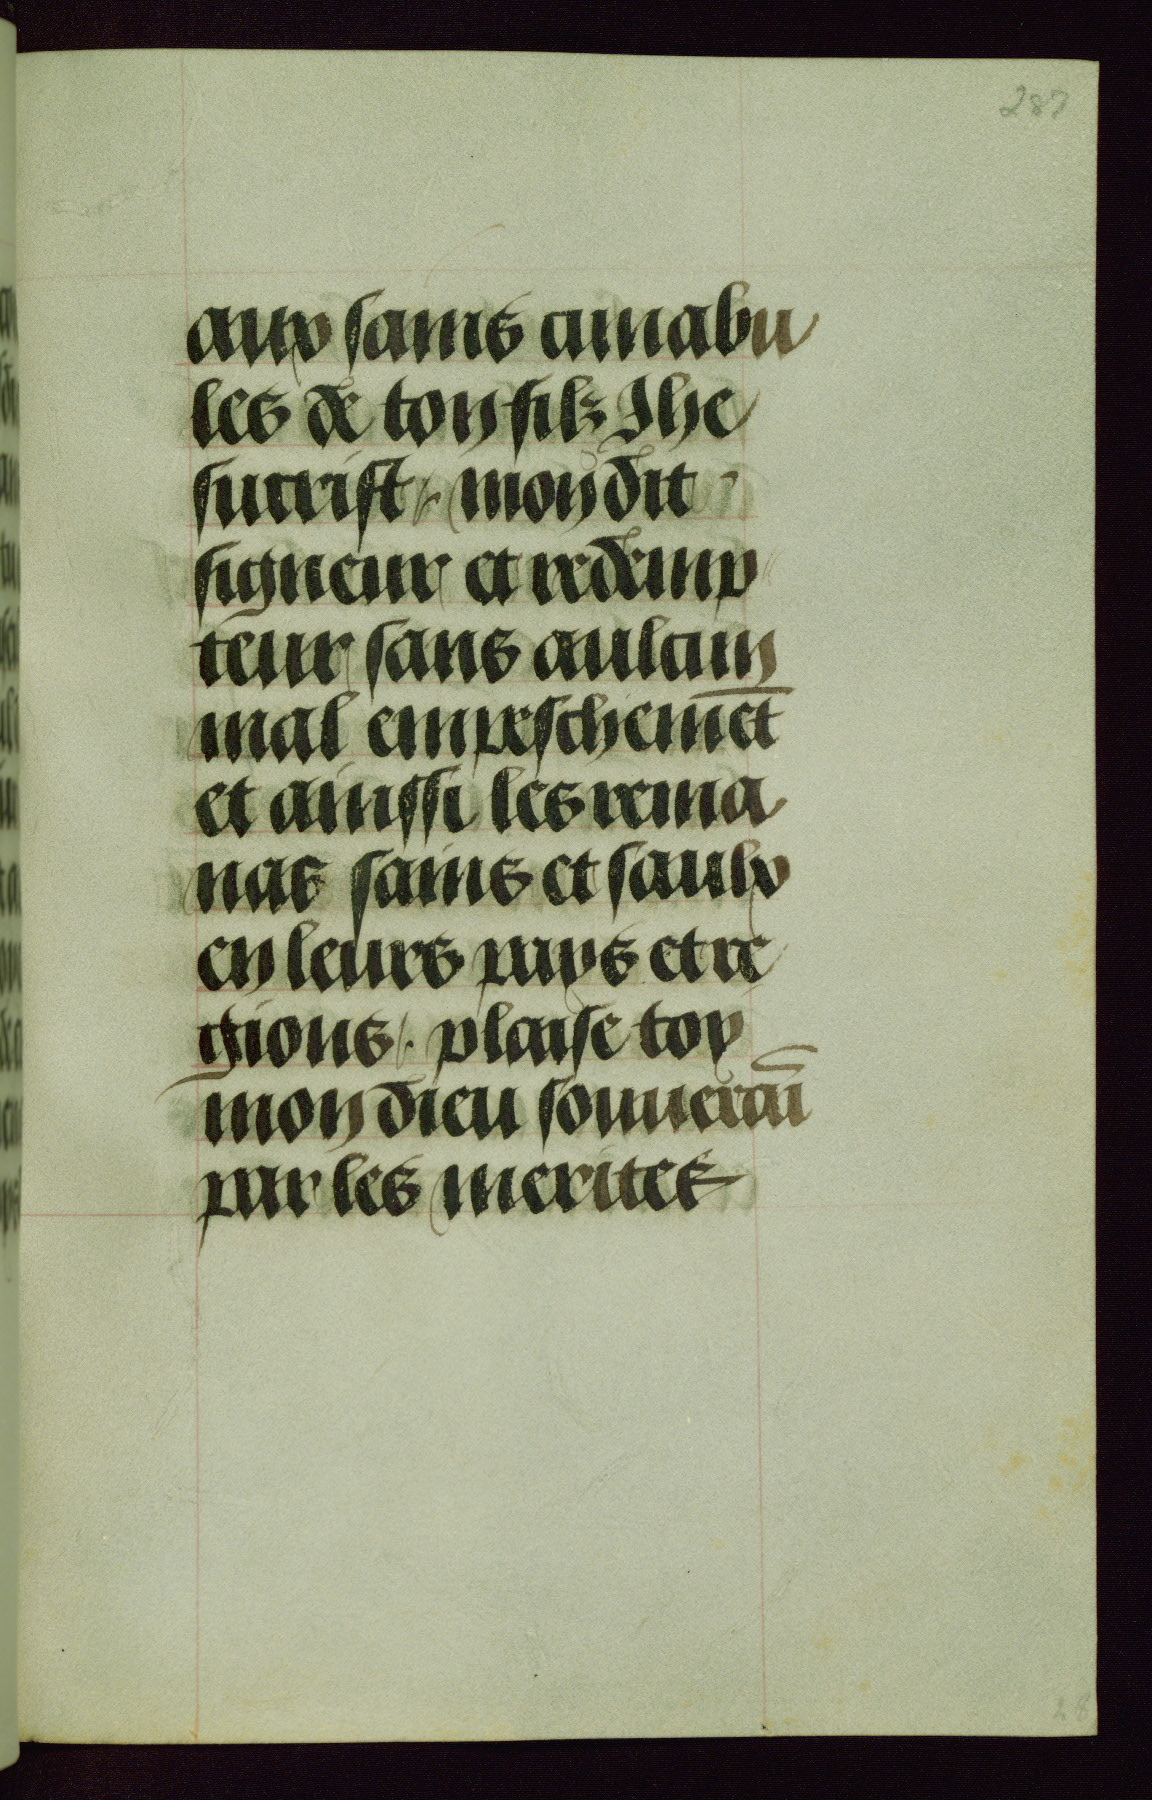 287
aux sains cunabu
les de ton filz Jhe
sucrist / mondit
signeur et redemp
teur sans aulcun
mal empeschem̄et
et ainssi les rema
nas sains et saulx
en leurs pays et re
gions / . plaise toy
mon dieu souuerai̅
par les merites